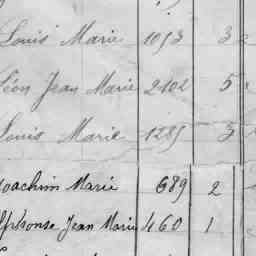 Louis Marie 1093 3
Léon Jean Marie 2102 5
Louis Marie 1289 3
Joachim Marie 689 2
Alphonse Jean Marie 460 1